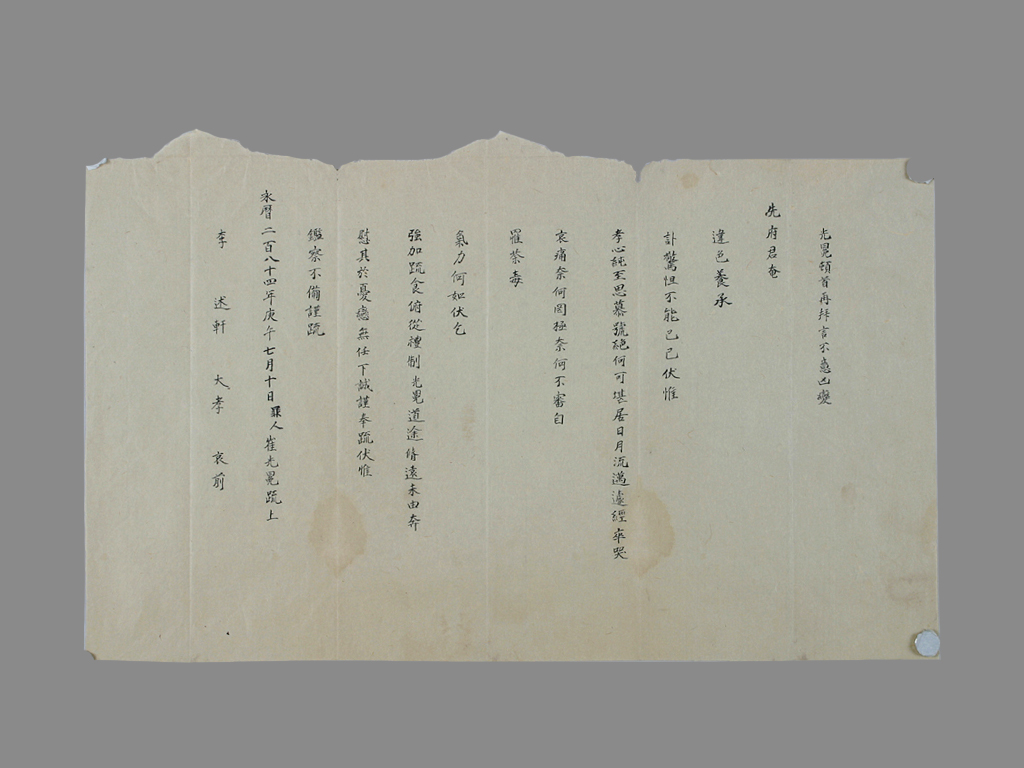 光晃頓首再拜言不意凶變
先府君奄
違色養承
訃驚怛不能已已伏惟
孝心純至思慕號絶何可堪居日月流邁遽經卒哭
哀痛奈何罔極奈何不審自
罹荼毒
氣力何如伏乞
強加疏食俯從禮制光晃道途脩遠未由奔
慰其於憂戀無任下誠謹奉疏伏惟
鑑察不備謹疏
永曆二百八十四年庚午七月十日罪人崔光晃疏上
李 述軒 大孝 哀前